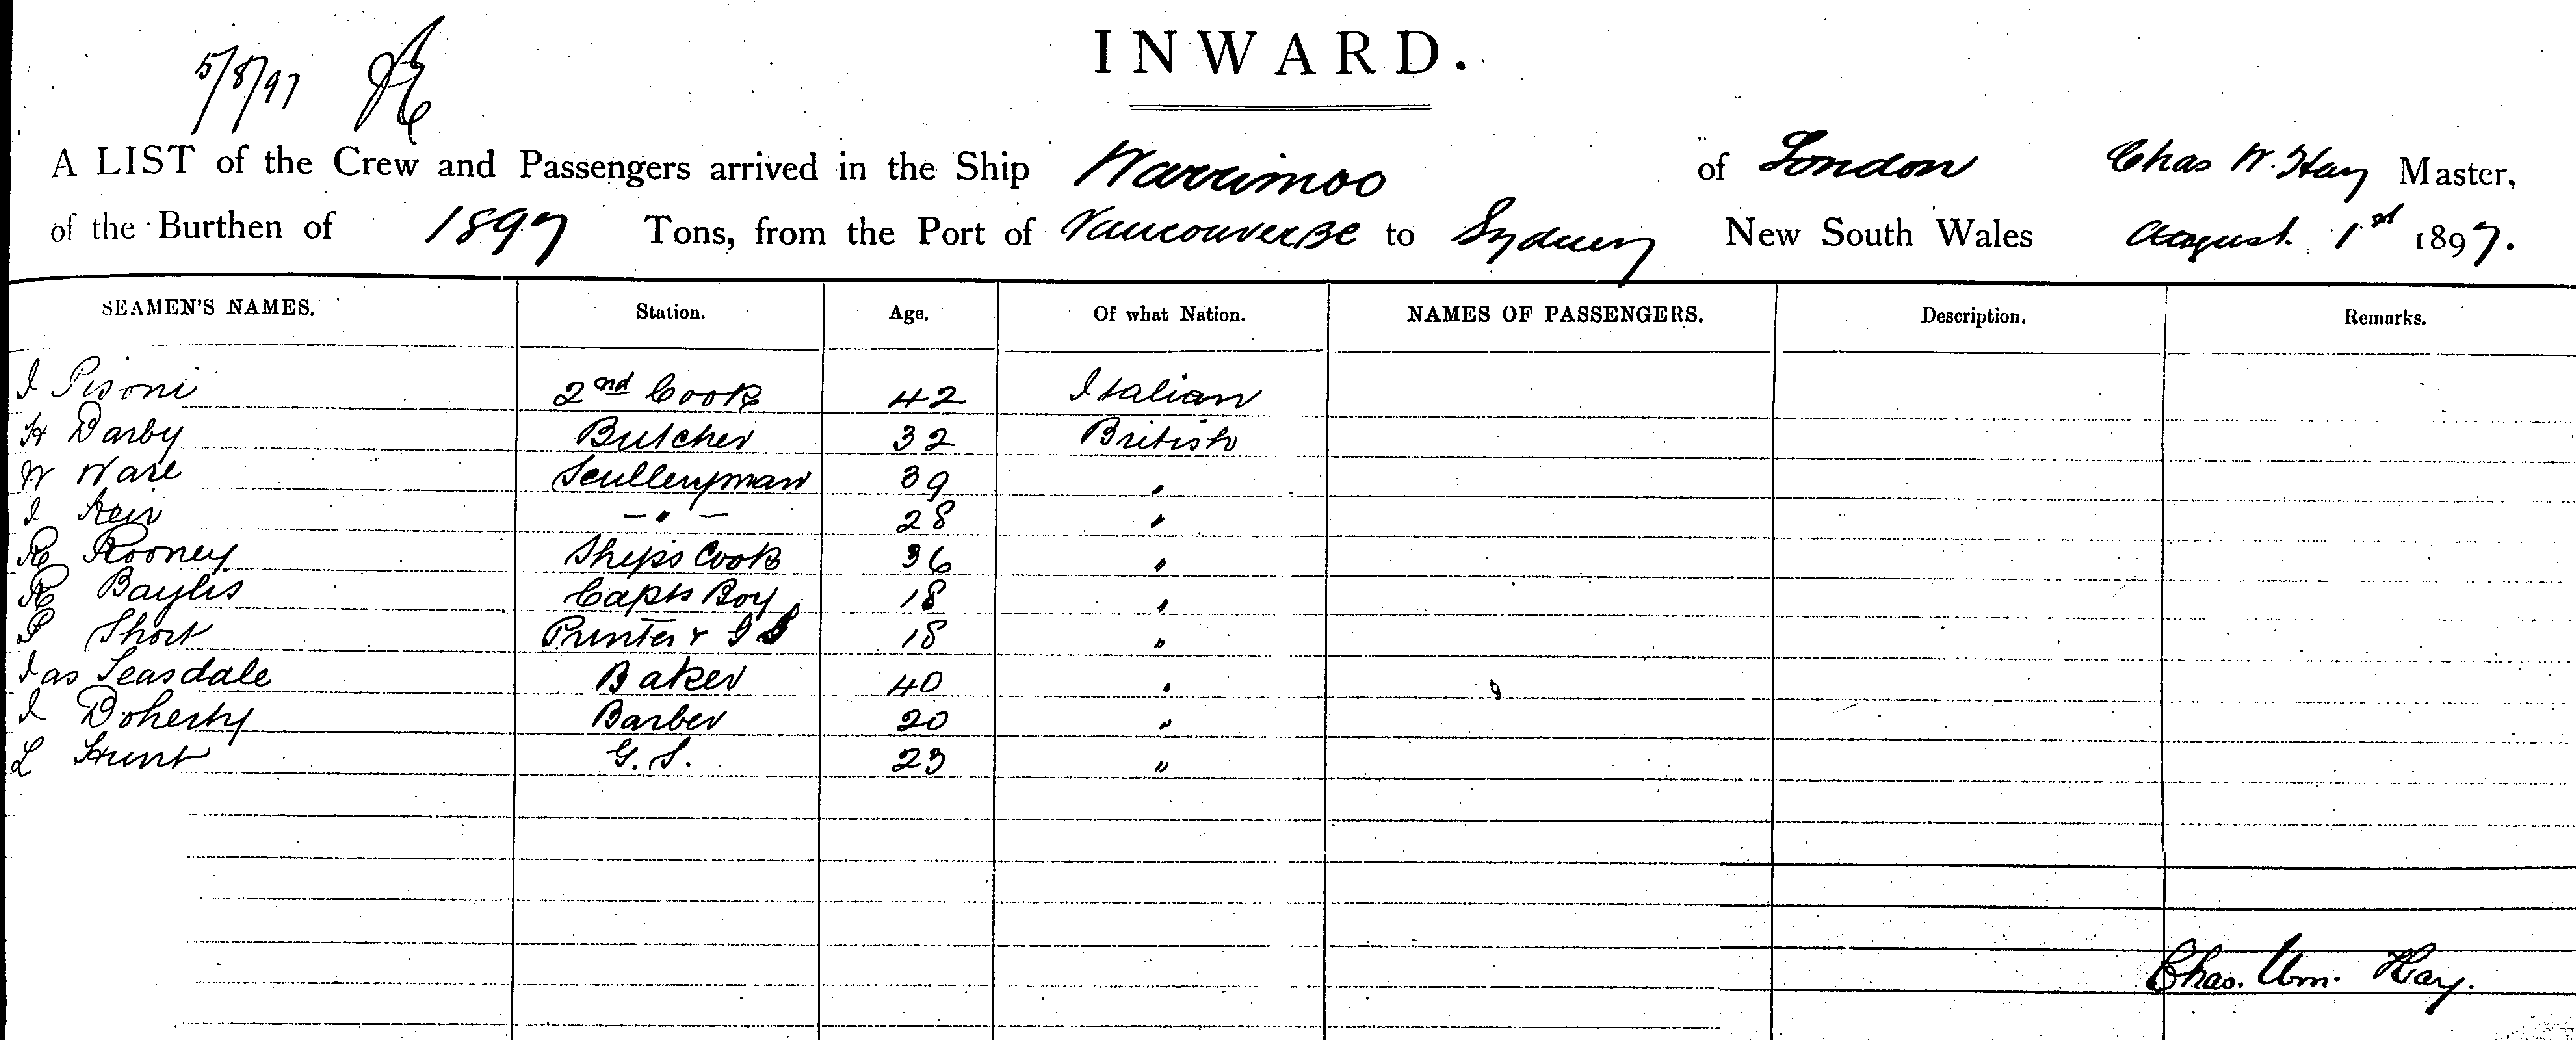 INWARD.
5/8/97
A LIST of the Crew and Passengers arrived in the Ship Warrimoo of London Chas W. Hay Master,
of the Burthen of 1897 Tons, from the Port of Vancouver BC to Sydney New South Wales August 1st 1897.
SEAMEN'S NAMES. Station. Age. Of what Nation. NAMES OF PASSENGERS. Description. Remarks.
I Pisoni 2nd Cook 42 Italian
H Darby Butcher 32 British
W Ware Sculleryman 39 "
I Keir - " - 28 "
R Rooney Ships Cook 36 "
R Baylis Capts Boy 18 "
P Short Printer & G S 18 "
Jas Teasdale Baker 40 "
J Doherty Barber 20 "
L Hunt G.S. 23 "
Chas. Wm. Hay.